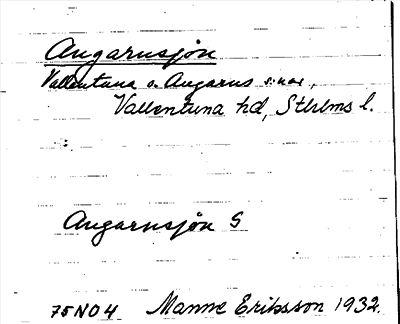 Angarnsjön
Vallentuna o. Angarns s:nar,
Vallentuna hd, Sthlms l.
Angarnsjön S
75N04 Manne Eriksson 1932.